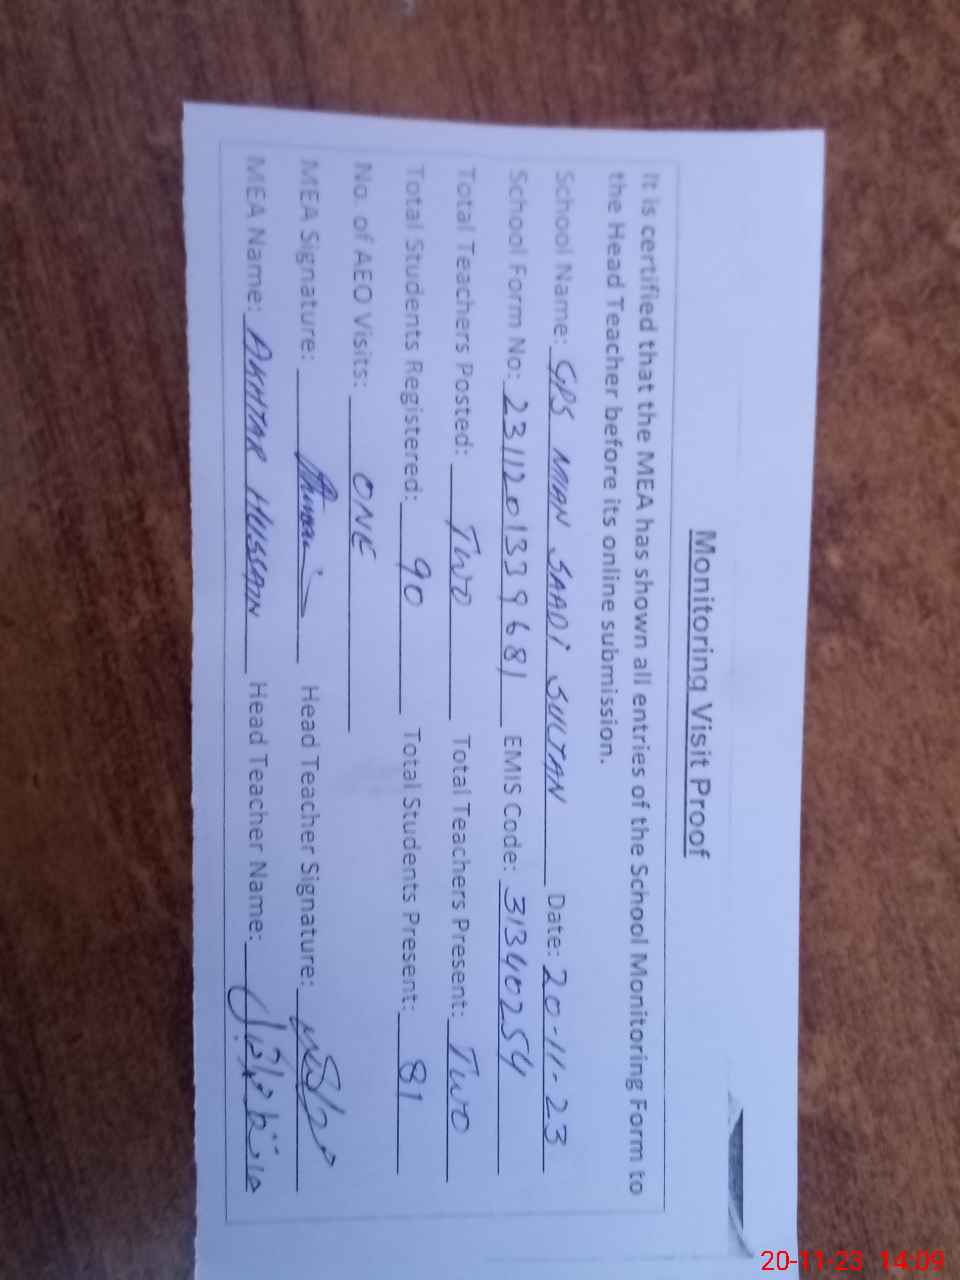 Monitoring Visit Proof
It is certified that the MEA has shown all entries of the School Monitoring Form to
the Head Teacher before its online submission.
School Name: GPS MIAN SAADI SULTAN Date: 20-11-23
School Form No: 2311201339681 EMIS Code: 31340254
Total Teachers Posted: TWO Total Teachers Present: TWO
Total Students Registered: 90 Total Students Present: 81
No. of AEO Visits: ONE
MEA Signature: Head Teacher Signature:
MEA Name: AKHTAR HUSSAIN Head Teacher Name:
20-11-23 14:09